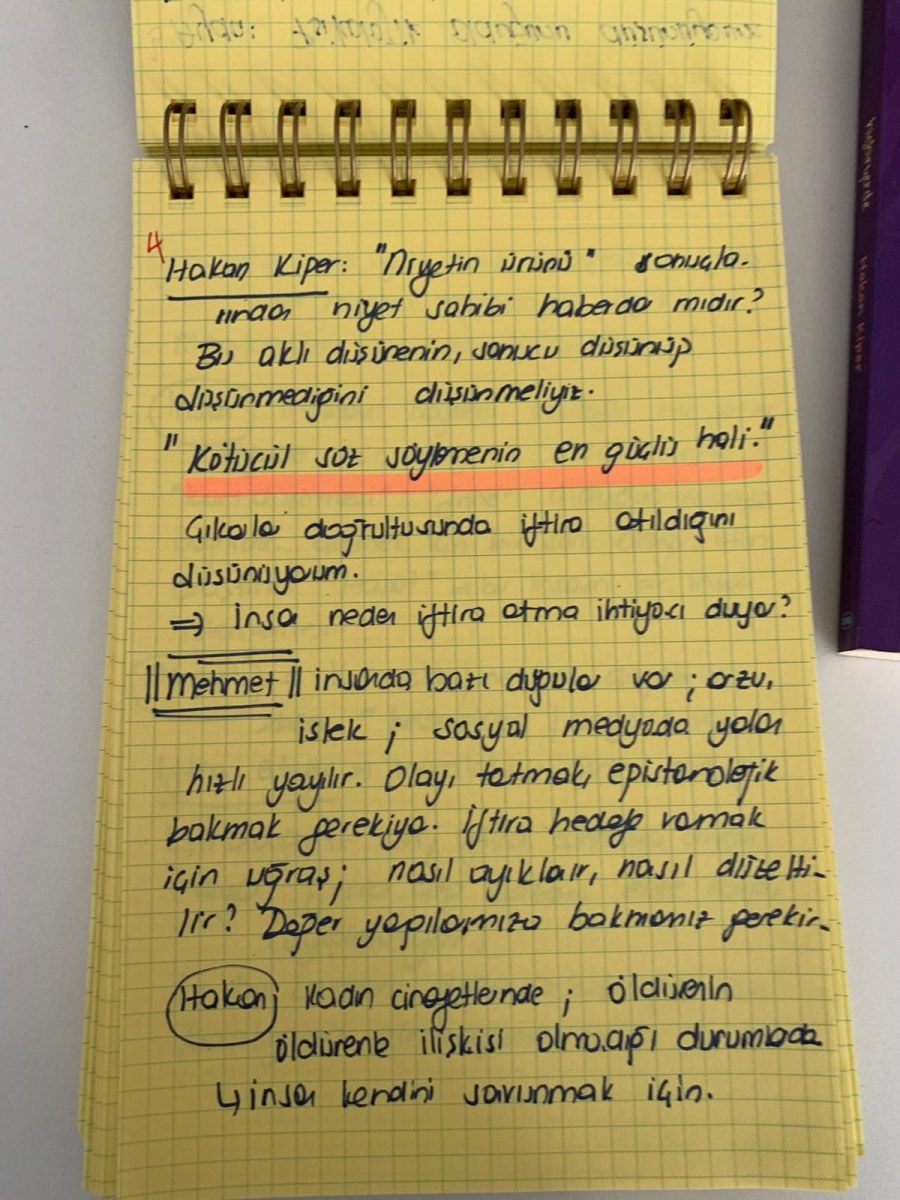 Ayda: Psikolojik olduğunu düşünüyorum
4
Hakan Kiper: "Niyetin ürünü" sonuçla.
rından niyet sahibi haberdar mıdır?
Bu aklı düşünenin, sonucu düşünüp
düşünmediğini düşünmeliyiz.
"Kötücül söz söylemenin en güçlü hali."
Çıkarlar doğrultusunda iftira atıldığını
düşünüyorum.
⇒ İnsan neden iftira atma ihtiyacı duyar?
||Mehmet|| insanda bazı duygular var ; arzu,
istek ; sosyal medyada yalan
hızlı yayılır. Olayı tatmak, epistemolojik
bakmak gerekiyor. İftira hedefe varmak
için uğraş; nasıl ayıklanır, nasıl düzelti-
lir? Değer yapılarımıza bakmamız gerekir.
Hakan; Kadın cinayetlerinde ; öldürenin
öldürenle ilişkisi olmadığı durumlarda
↳ insan kendini savunmak için.
Hakan Kiper